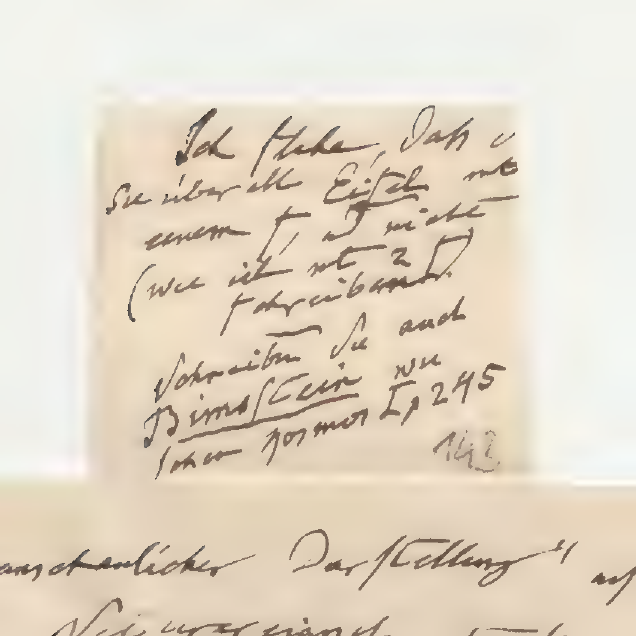 Ich sehe, daß
Sie überall Eifel mit
einem f, u nicht
(wie ich mit 2 f)
schreiben.
Schreiben Sie auch
Bimsstein wie
schon Kosmos I p 245
143
anschaulicher Darstellung" auf